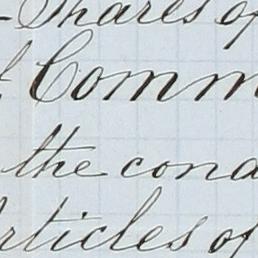 Shares of
Comm
the cond
Articles of